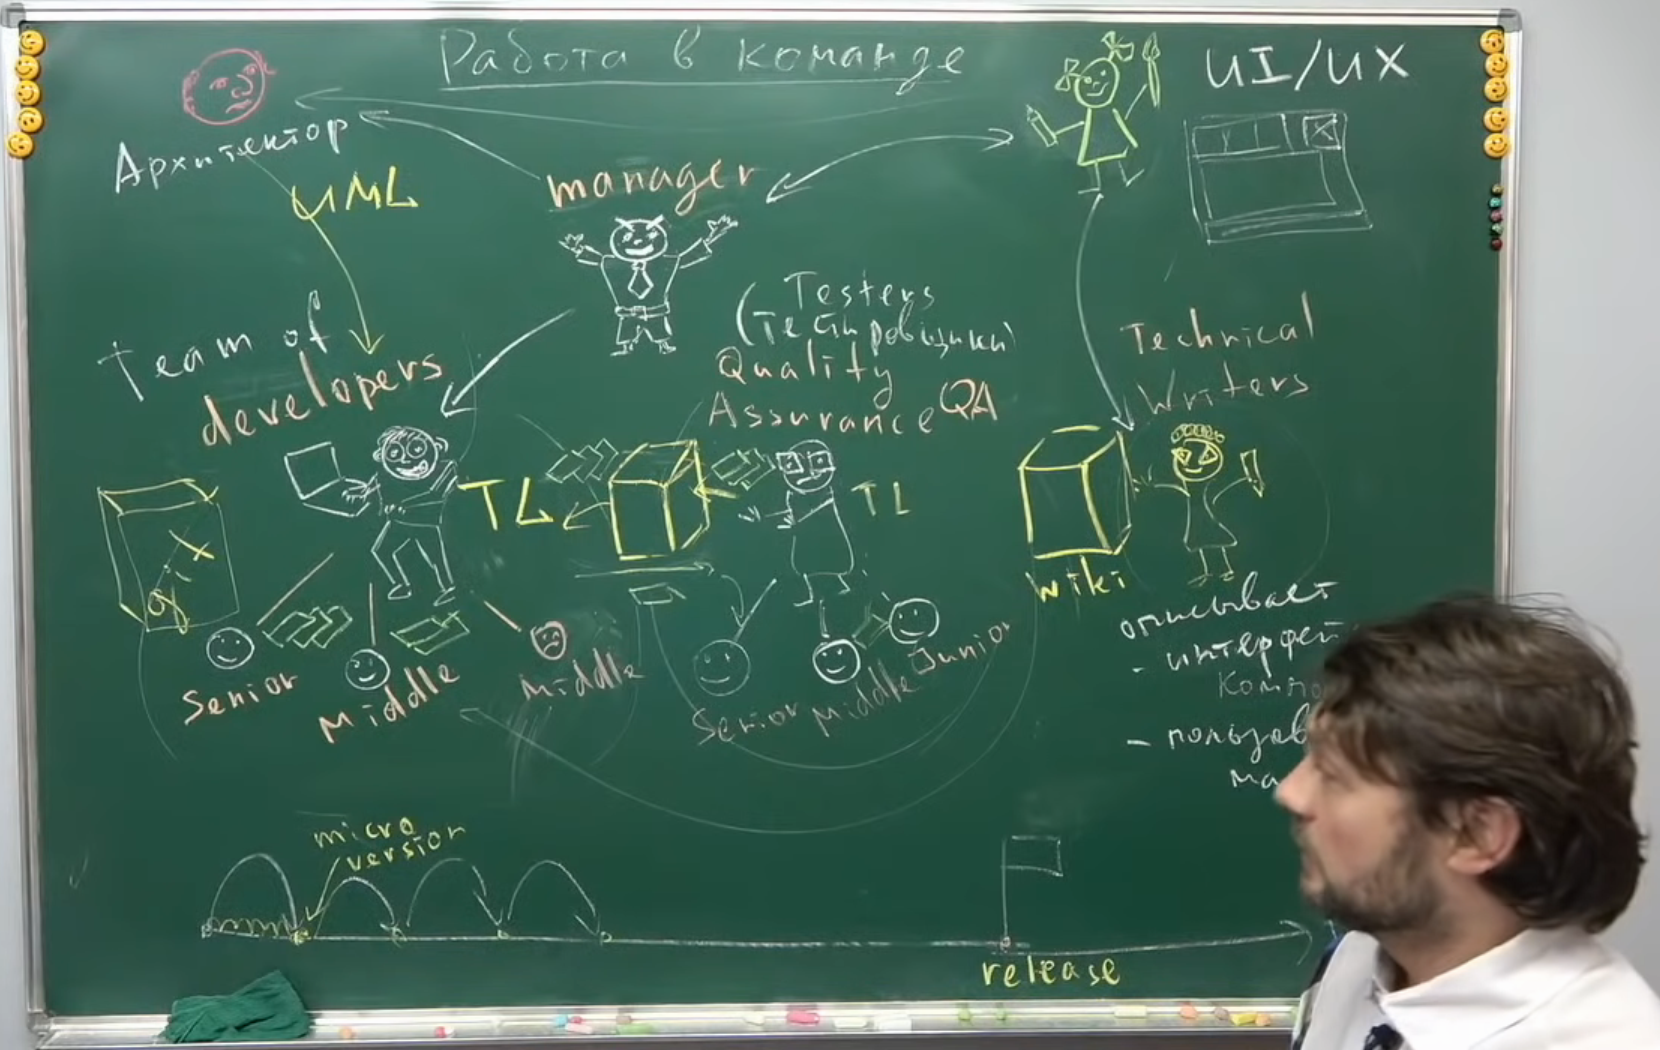 Работа в команде
UI/UX
Архитектор
UML
manager
Team of
developers
(Testers
(тестировщики)
Quality
Assurance QA
Technical
Writers
TL
TL
wiki
описывает
- интерфей
компо
- пользов
ма
Senior
Middle
Middle
Senior
Middle
Junior
micro
version
release